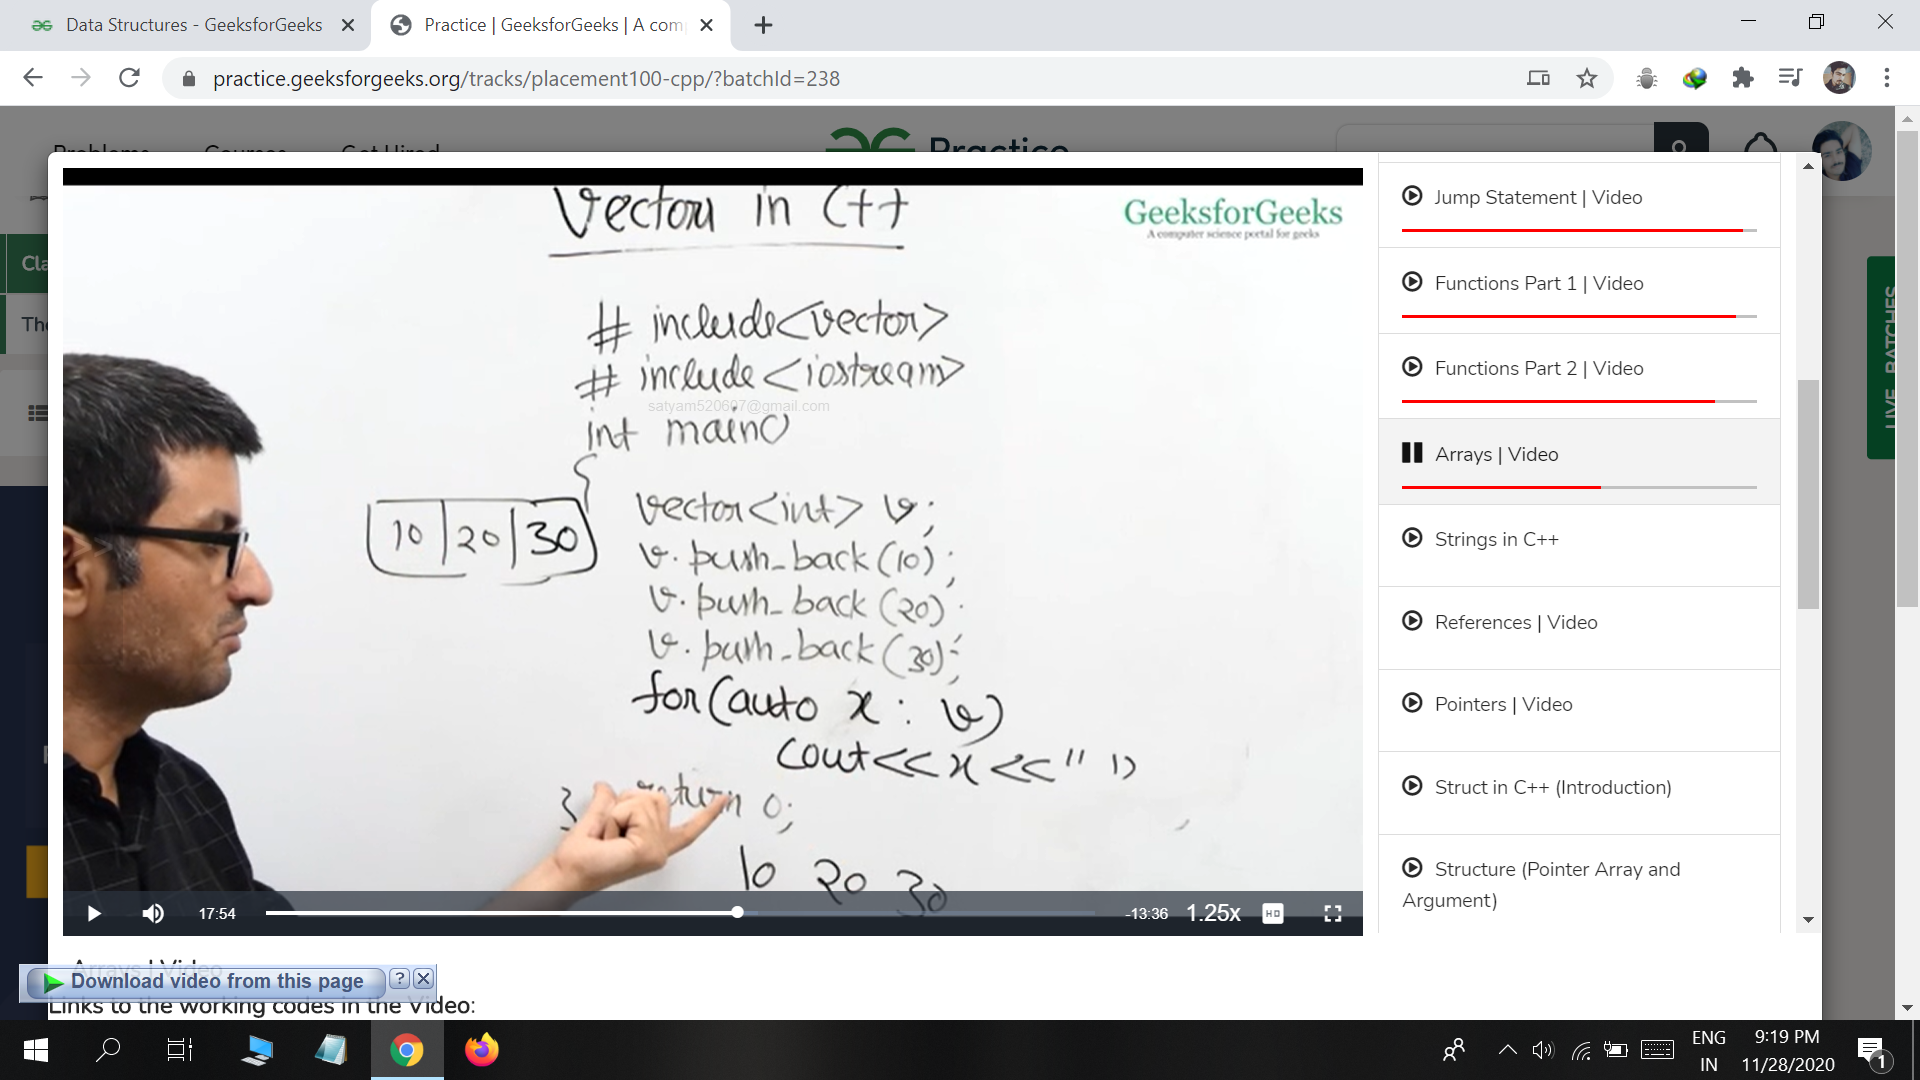 Data Structures - GeeksforGeeks
Practice | GeeksforGeeks | A com
practice.geeksforgeeks.org/tracks/placement100-cpp/?batchId=238
Problems Courses Get Hired
Practice
Vector in C++
GeeksforGeeks
A computer science portal for geeks
# include<vector>
# include<iostream>
satyam520607@gmail.com
int main()
{
10 20 30
vector<int> v;
v.push_back(10);
v.push_back(20);
v.push_back(30);
for(auto x : v)
cout<<x<<" ";
} return 0;
10 20 30
17:54
-13:36 1.25x HD
Jump Statement | Video
Functions Part 1 | Video
Functions Part 2 | Video
Arrays | Video
Strings in C++
References | Video
Pointers | Video
Struct in C++ (Introduction)
Structure (Pointer Array and
Argument)
Cla
The
LIVE BATCHES
Arrays | Video
Download video from this page ?
Links to the working codes in the Video:
ENG
IN
9:19 PM
11/28/2020
1